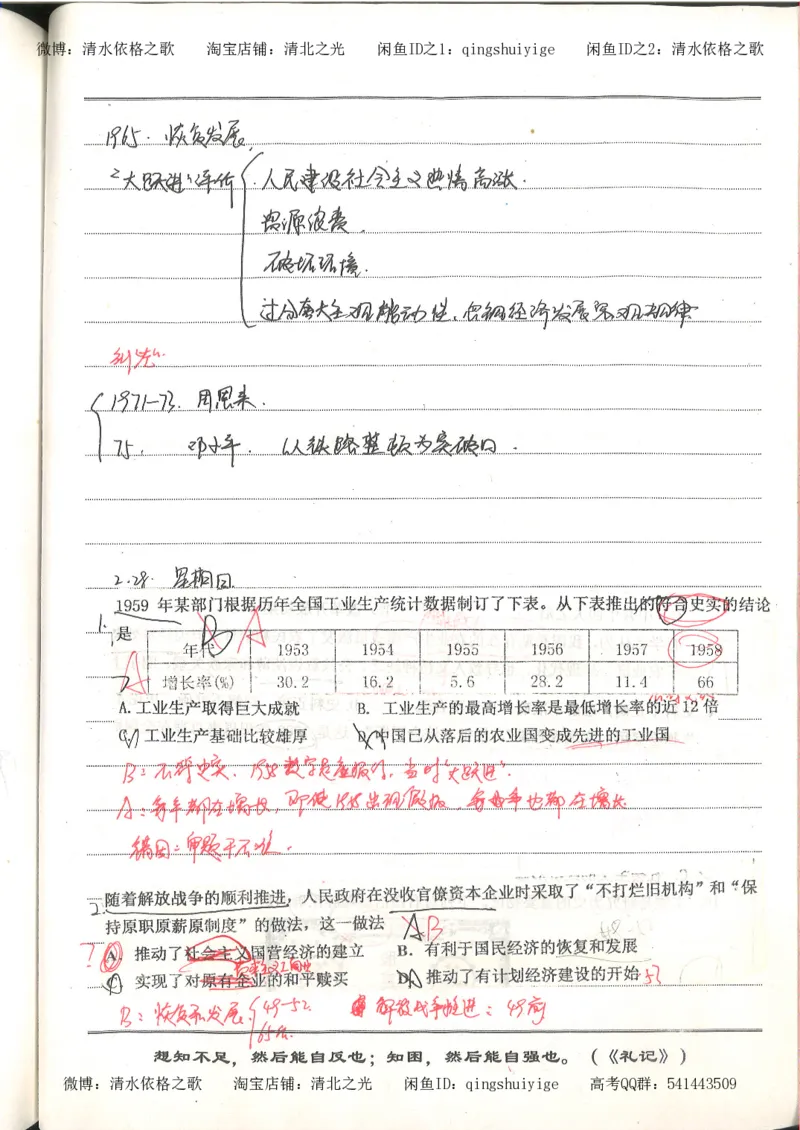 微博：清水依格之歌 淘宝店铺：清北之光 闲鱼ID之1：qingshuiyige 闲鱼ID之2：清水依格之歌
1965. 恢复发展
"大跃进"评价 人民建设社会主义热情高涨.
资源浪费.
破坏环境.
过分夸大主观能动性、忽视经济发展客观规律
纠"左"
1971—73. 周恩来.
75. 邓小平. 以铁路整顿为突破口.
2.28. 星期日
1. 1959 年某部门根据历年全国工业生产统计数据制订了下表。从下表推出的符合史实的结论
是 B A
年代 1953 1954 1955 1956 1957 1958
增长率(%) 30.2 16.2 5.6 28.2 11.4 66
A
A.工业生产取得巨大成就 B. 工业生产的最高增长率是最低增长率的近 12 倍
C. 工业生产基础比较雄厚 D.中国已从落后的农业国变成先进的工业国
B：不符史实. 1958数字是虚报的，当时"大跃进".
A：每年都在增长，即使1958出现假报，每年也都在增长
错因：审题干不准.
2. 随着解放战争的顺利推进，人民政府在没收官僚资本企业时采取了“不打烂旧机构”和“保
持原职原薪原制度”的做法，这一做法 A B
? A. 推动了社会主义国营经济的建立 B. 有利于国民经济的恢复和发展
C. 实现了对原有企业的和平赎买 D. 推动了有计划经济建设的开始 53
B：恢复和发展 49-52. 解放战争推进：49前
65年.
想知不足，然后能自反也；知困，然后能自强也。（《礼记》）
微博：清水依格之歌 淘宝店铺：清北之光 闲鱼ID：qingshuiyige 高考QQ群：541443509